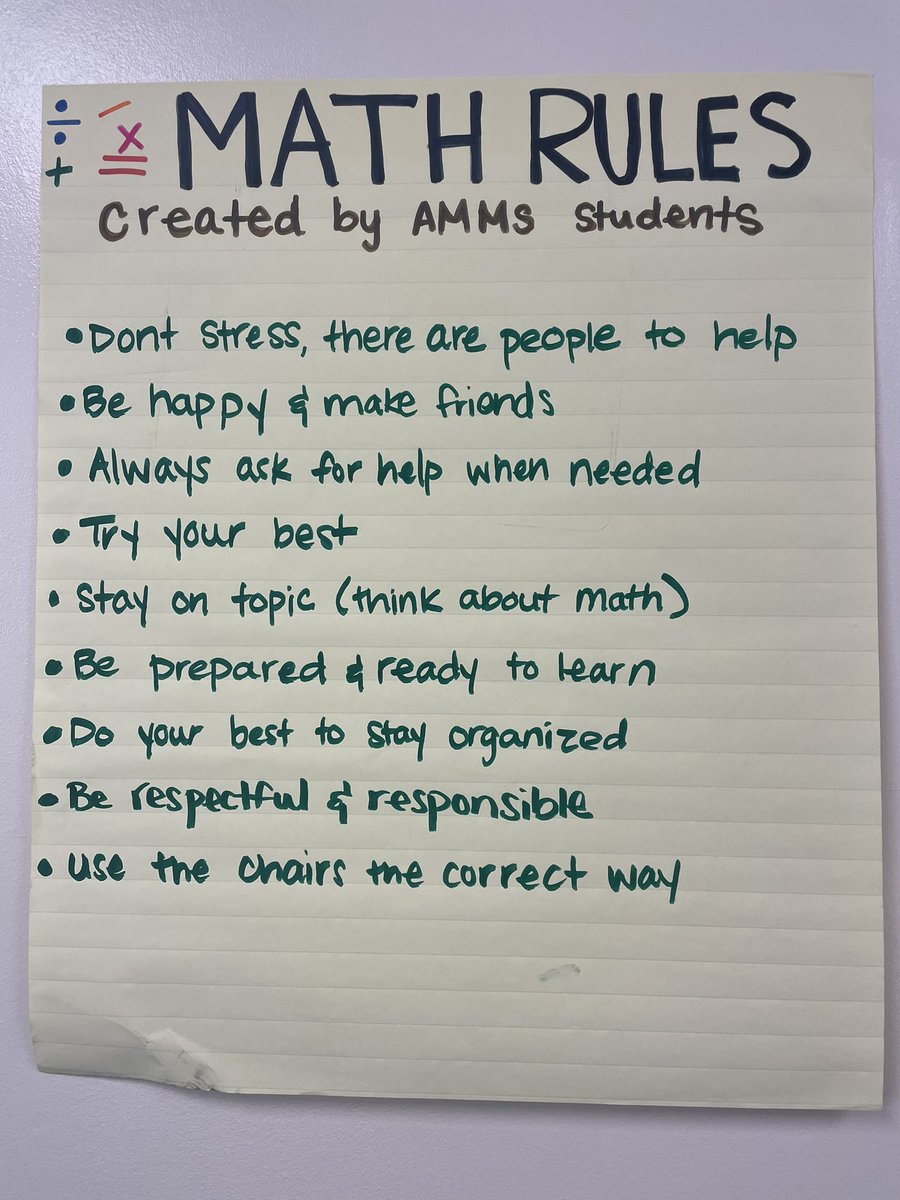 ÷ - × = + MATH RULES
Created by AMMS students
• Dont stress, there are people to help
• Be happy & make friends
• Always ask for help when needed
• Try your best
• Stay on topic (think about math)
• Be prepared & ready to learn
• Do your best to stay organized
• Be respectful & responsible
• use the chairs the correct way